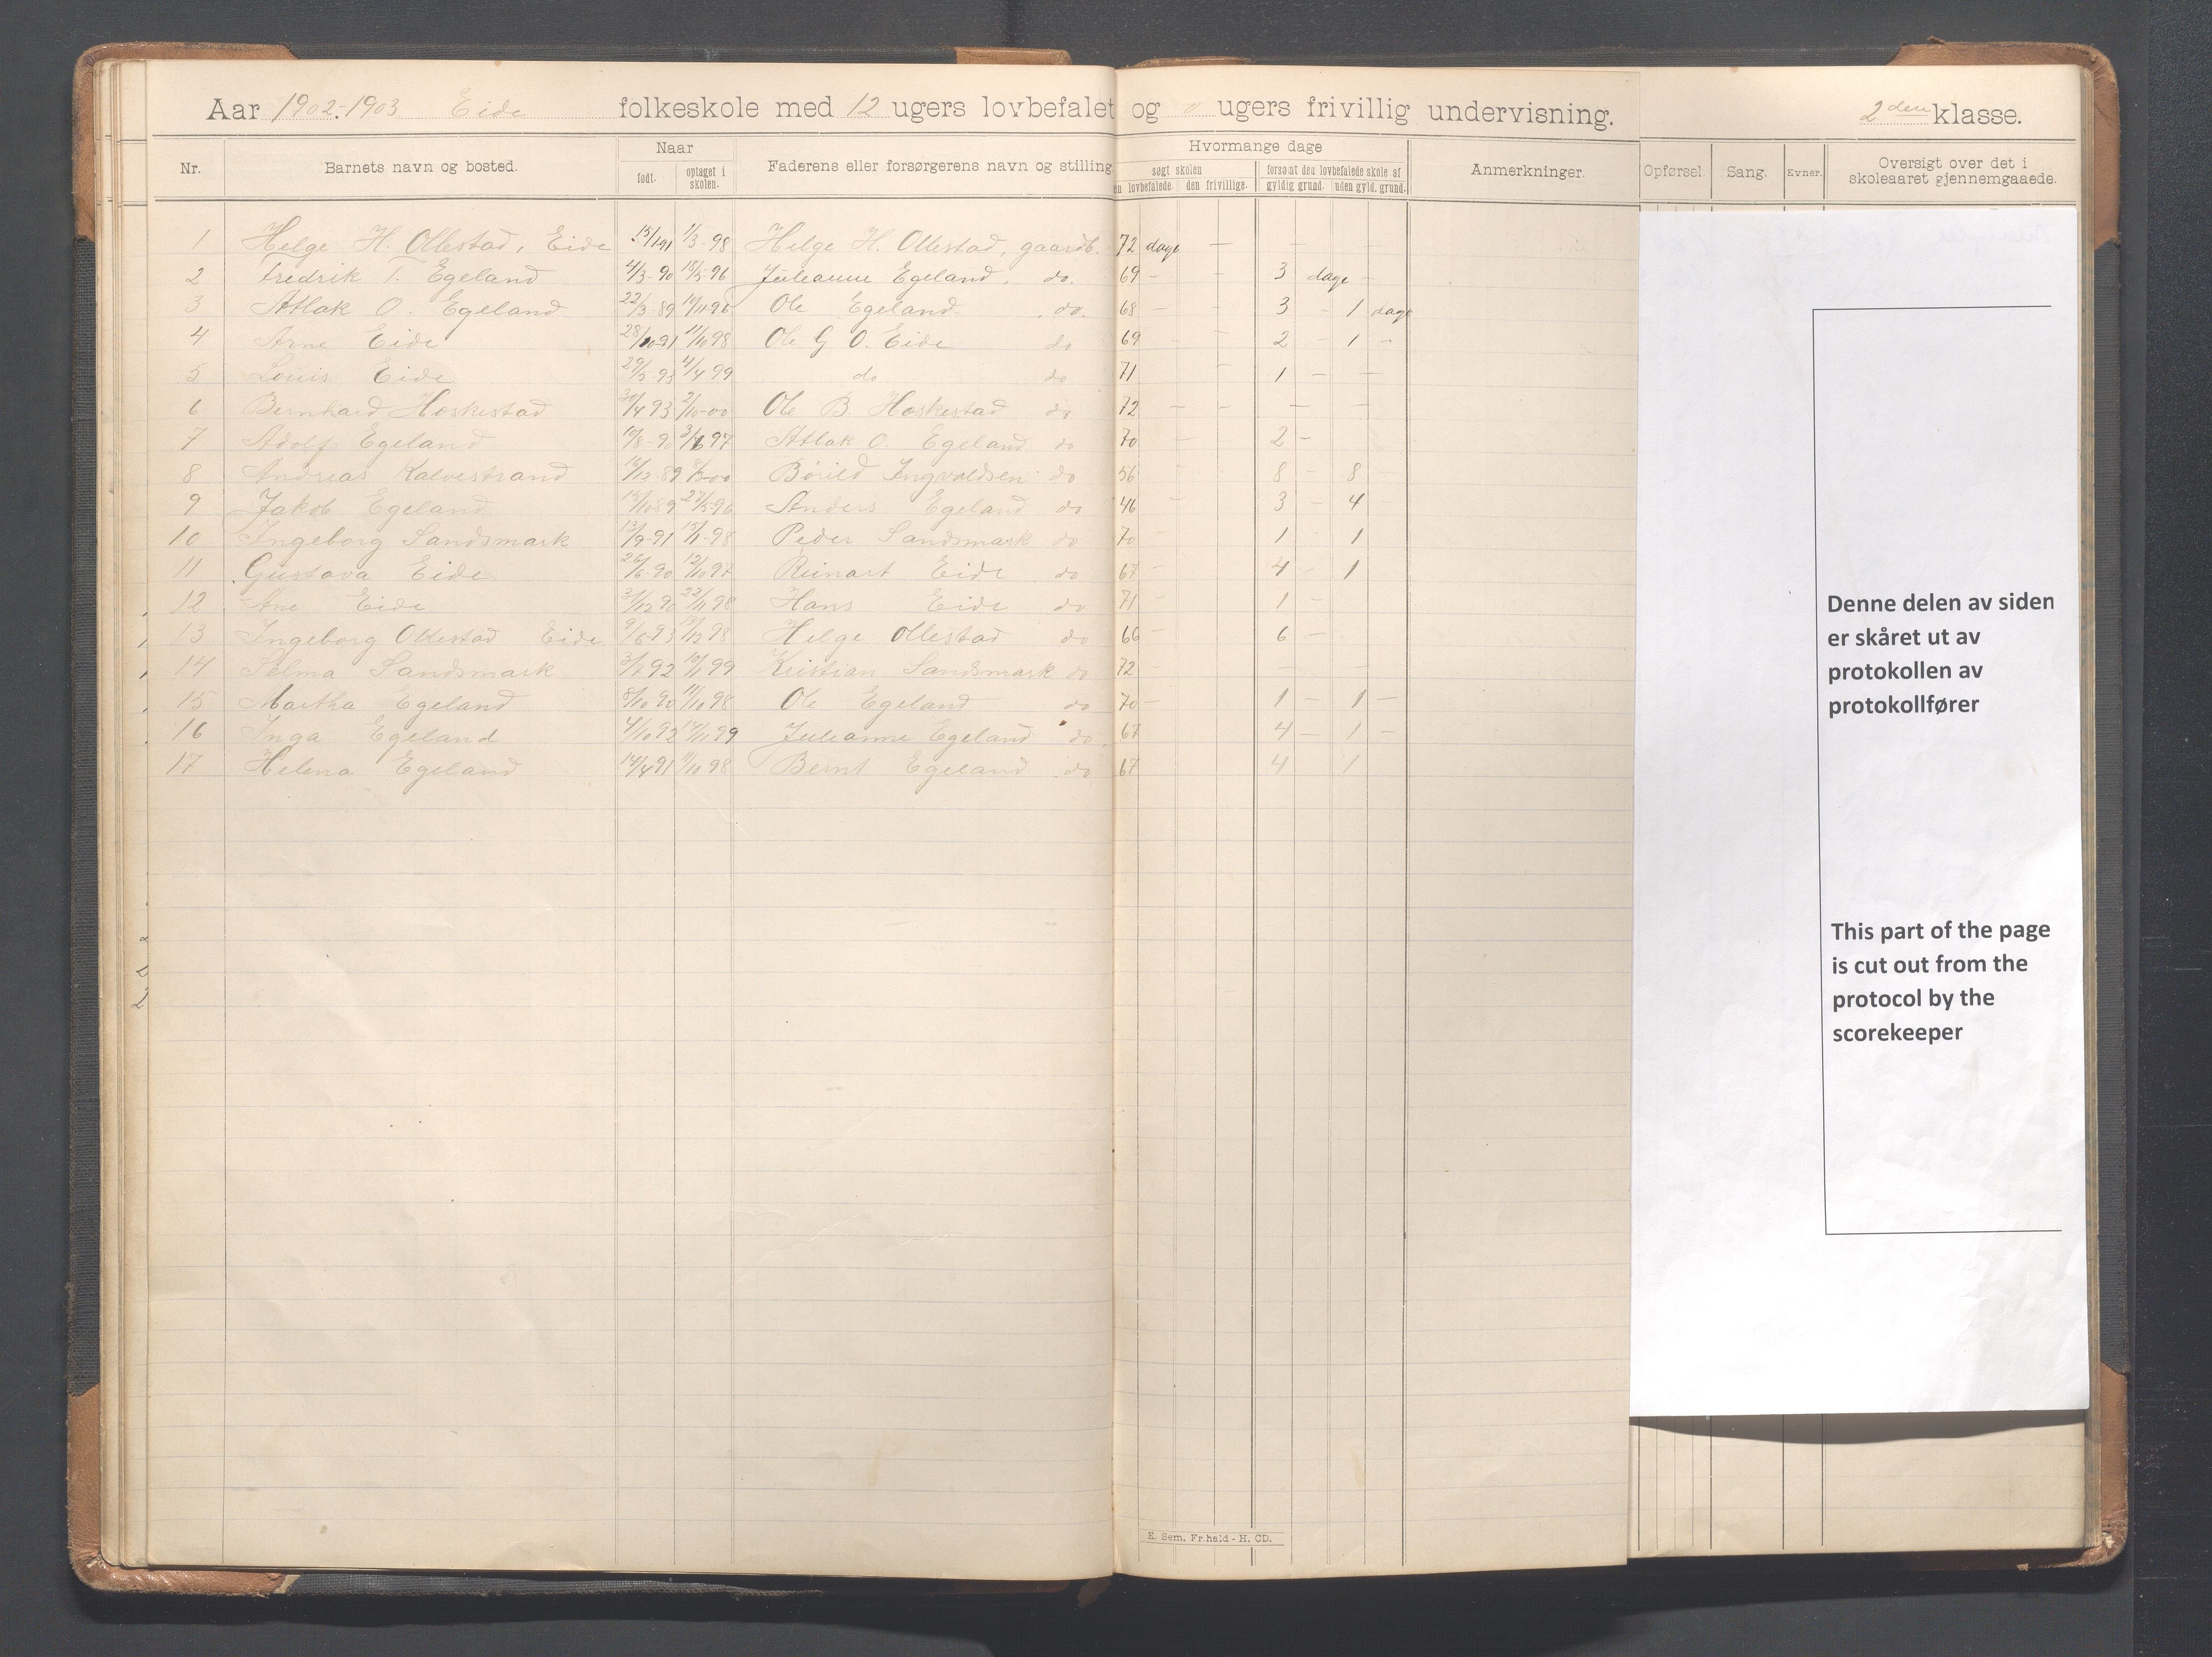 Aar 1902-1903 Eide folkeskole med 12 ugers lovbefalet og 0 ugers frivillig undervisning. 2den klasse.
Nr. Barnets navn og bosted. Naar født. optaget i skolen. Faderens eller forsørgerens navn og stilling Hvormange dage søgt skolen en lovbefalede. den frivillige. forsømt den lovbefalede skole af gyldig grund. uden gyld. grund. Anmerkninger. Opførsel. Sang. Evner. Oversigt over det i skoleaaret gjennemgaaede.
1 Helge H. Ollestad, Eide 15/1 91 1/3-98 Helge H. Ollestad, gaardb. 72 dage — — —
2 Fredrik T. Egeland 4/3-90 15/5-96 Juleanne Egeland, do. 69 — — 3 dage —
3 Atlak O. Egeland 22/3-89 Ole Egeland do. 68 — — 3 — 1 dage
4 Arne Eide 28/10-91 11/10 98 Ole G O. Eide do 69 — — 2 — 1 —
5 Louis Eide 29/5-93 4/4 99 do do 71 — 1 — —
6 Bernhard Hoskestad 30/4 93 2/10-00 Ole B. Hoskestad do 72 — — — —
7 Adolf Egeland 10/8-90 97 Atlak O. Egeland do 70 — 2 —
8 Andreas Kalvestrand 16/12 89 Børild Ingvaldsen do 56 8 — 8
9 Jakob Egeland 15/10 89 27/5-96 Anders Egeland do 46 — 3 — 4
10 Ingeborg Sandsmark 13/9-91 15/1-98 Peder Sandsmark do 70 — 1 — 1
11 Gustava Eide 26/6-90 12/10 97 Reinart Eide do 67 — 4 — 1
12 Ane Eide 90 22/11 98 Hans Eide do 71 — 1 —
13 Ingeborg Ollestad Eide 9/6-93 13/12 98 Helge Ollestad do 66 — 6 —
14 Selma Sandsmark 92 10/11 99 Kristian Sandsmark do 72 — — —
15 Martha Egeland 8/10 90 11/10 98 Ole Egeland do 70 — 1 — 1 —
16 Inga Egeland 4/10 92 14/11 99 Juleanne Egeland do 67 4 — 1 —
17 Helena Egeland 14/4 91 11/10 98 Bernt Egeland do 67 4 1
Denne delen av siden
er skåret ut av
protokollen av
protokollfører
This part of the page
is cut out from the
protocol by the
scorekeeper
E. Sem. Fr.hald - H. CD.